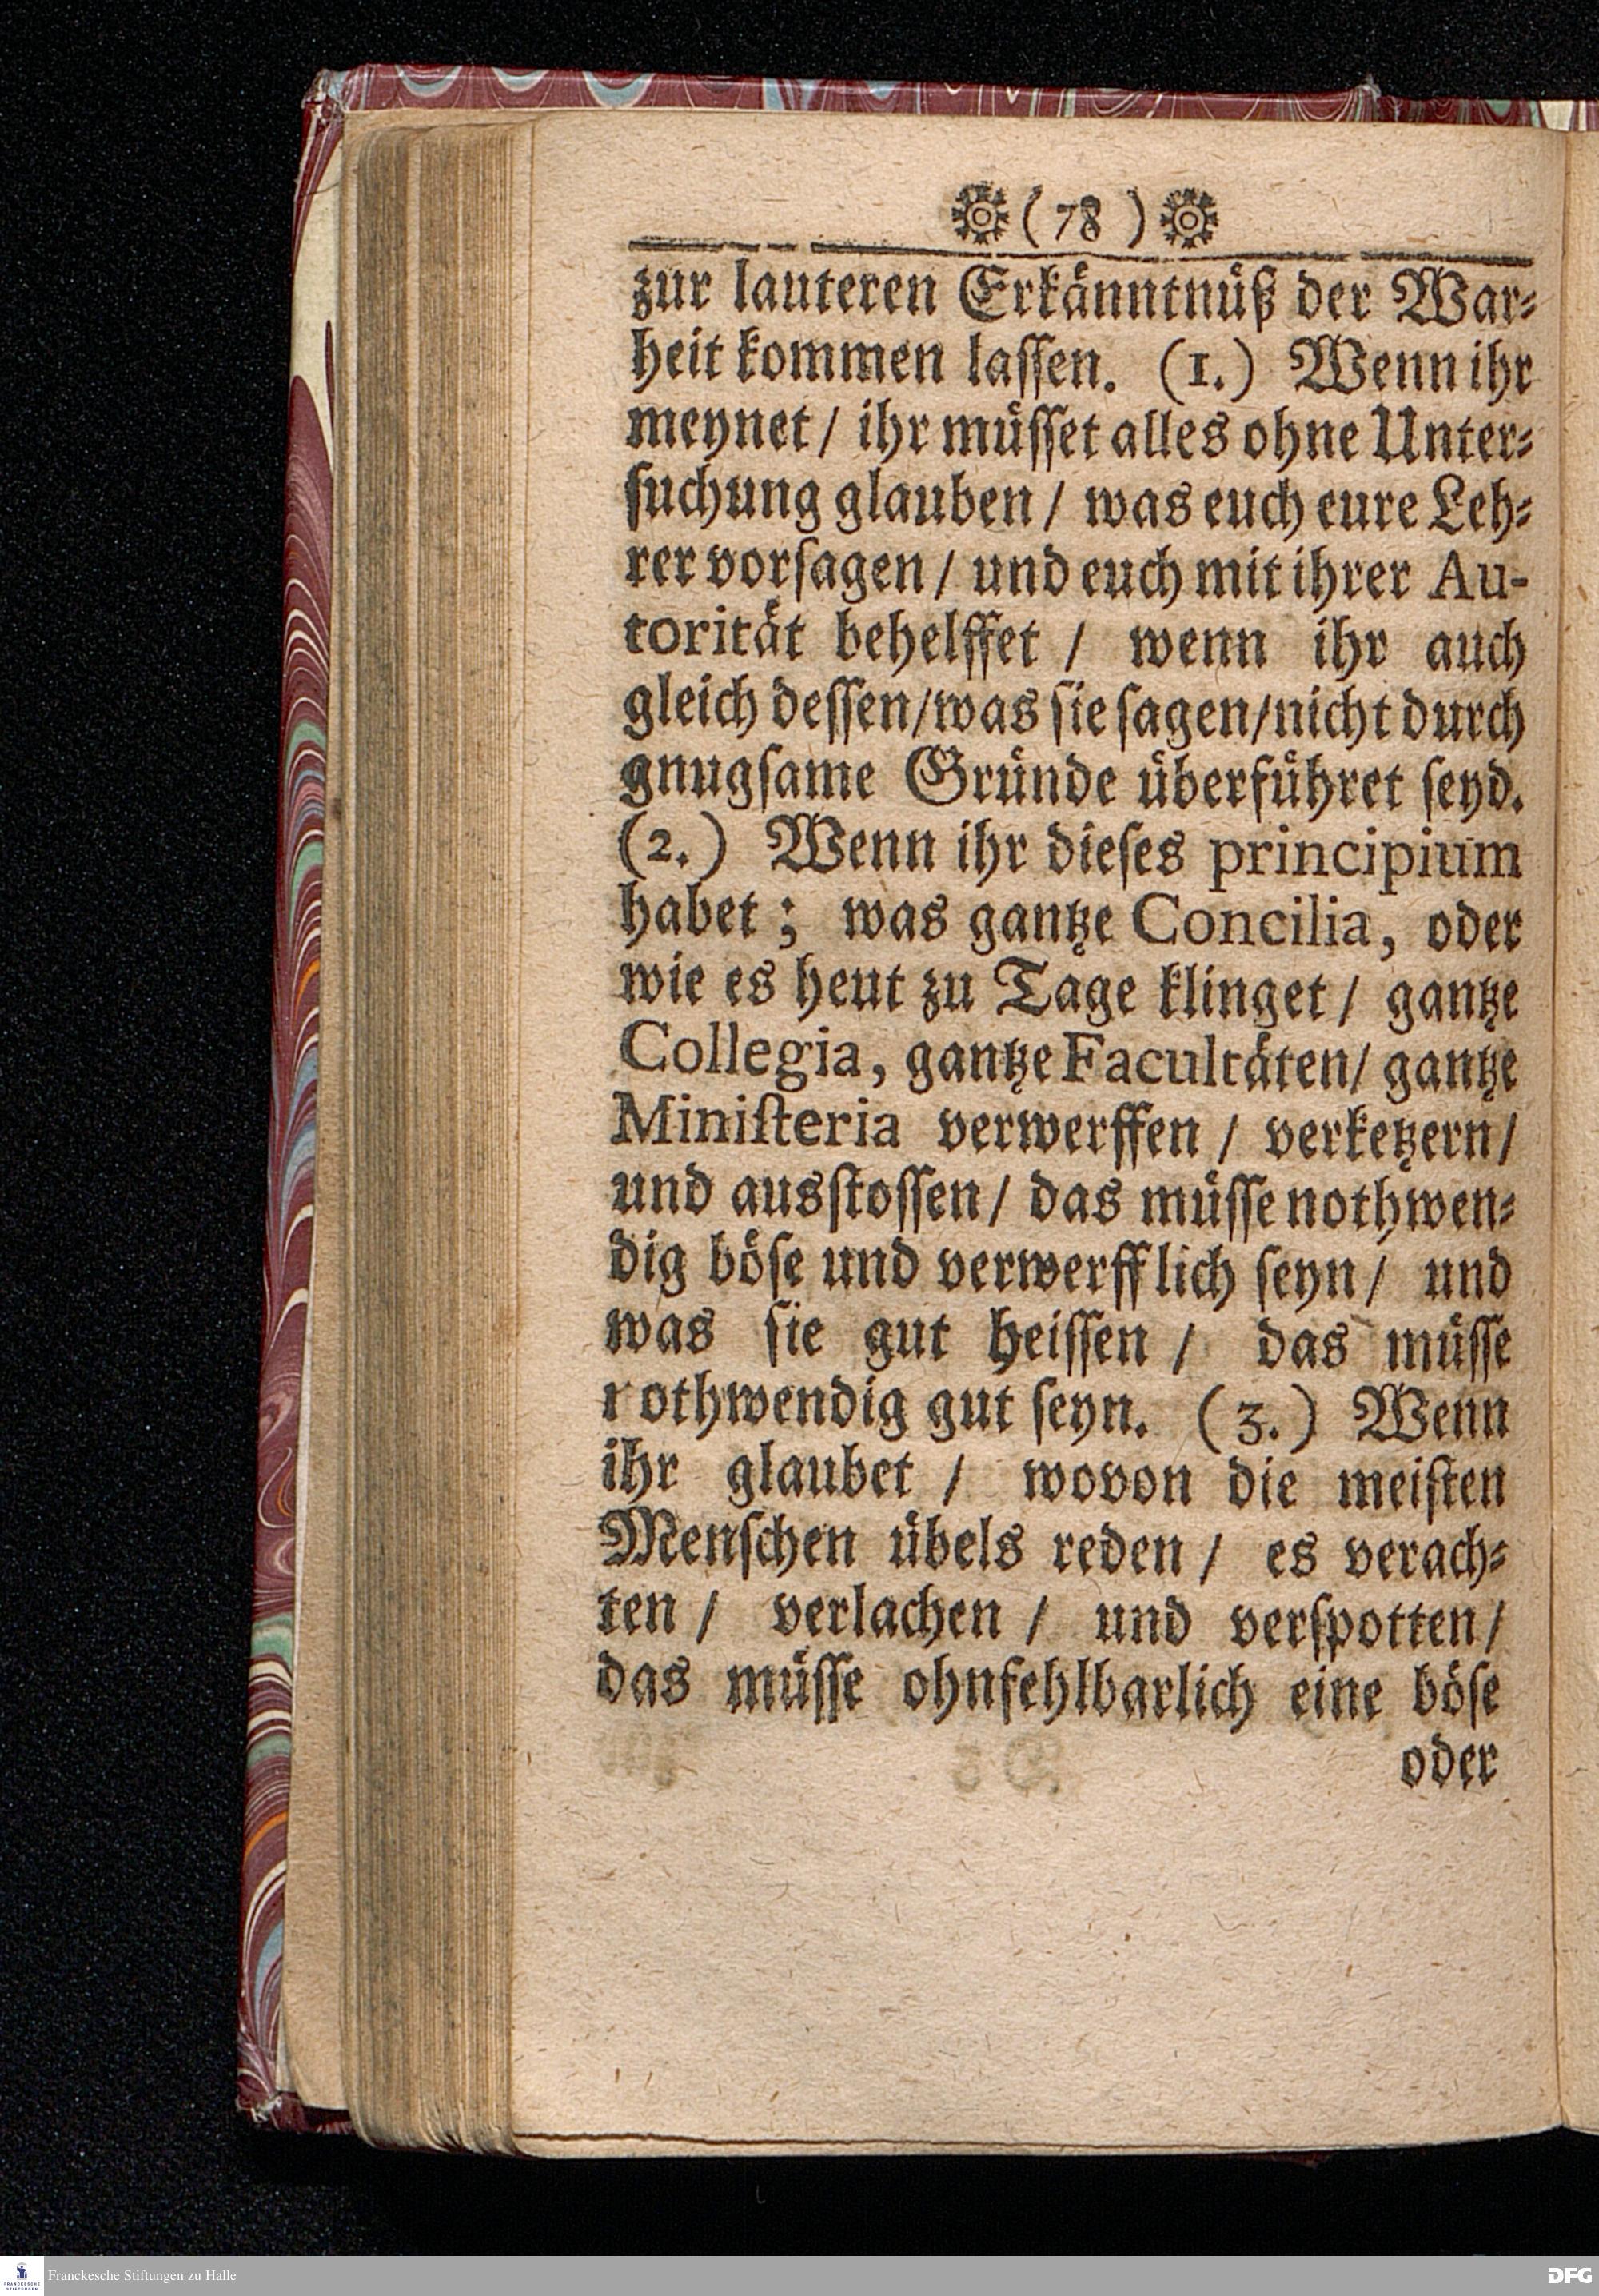 ( 78 )
zur lauteren Erkänntnüß der War⸗
heit kommen laſſen. (1.) Wenn ihr
meynet / ihr müſſet alles ohne Unter⸗
ſuchung glauben / was euch eure Leh⸗
rer vorſagen / und euch mit ihrer Au-
torität behelffet / wenn ihr auch
gleich deſſen / was ſie ſagen / nicht durch
gnugſame Gründe überführet ſeyd.
(2.) Wenn ihr dieſes principium
habet ; was gantze Concilia, oder
wie es heut zu Tage klinget / gantze
Collegia, gantze Facultäten / gantze
Miniſteria verwerffen / verketzern /
und ausſtoſſen / das müſſe nothwen⸗
dig böſe und verwerfflich ſeyn / und
was ſie gut heiſſen / das müſſe
rothwendig gut ſeyn. (3.) Wenn
ihr glaubet / wovon die meiſten
Menſchen übels reden / es verach⸗
ten / verlachen / und verſpotten /
das müſſe ohnfehlbarlich eine böſe
oder
Franckesche Stiftungen zu Halle
DFG